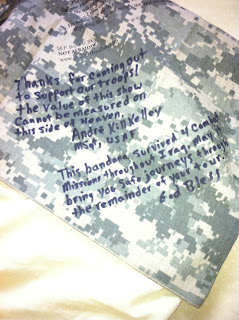 NOT
Thanks for coming out
to support our troops!
the value of this show
Cannot be measured on
this side of Heaven.
Andre Killkelley
msgt, USAF
This bandana survived 4 combat
Missions throughout Iraq. May it
bring you safe journeys through
the remainder of your tour.
God Bless